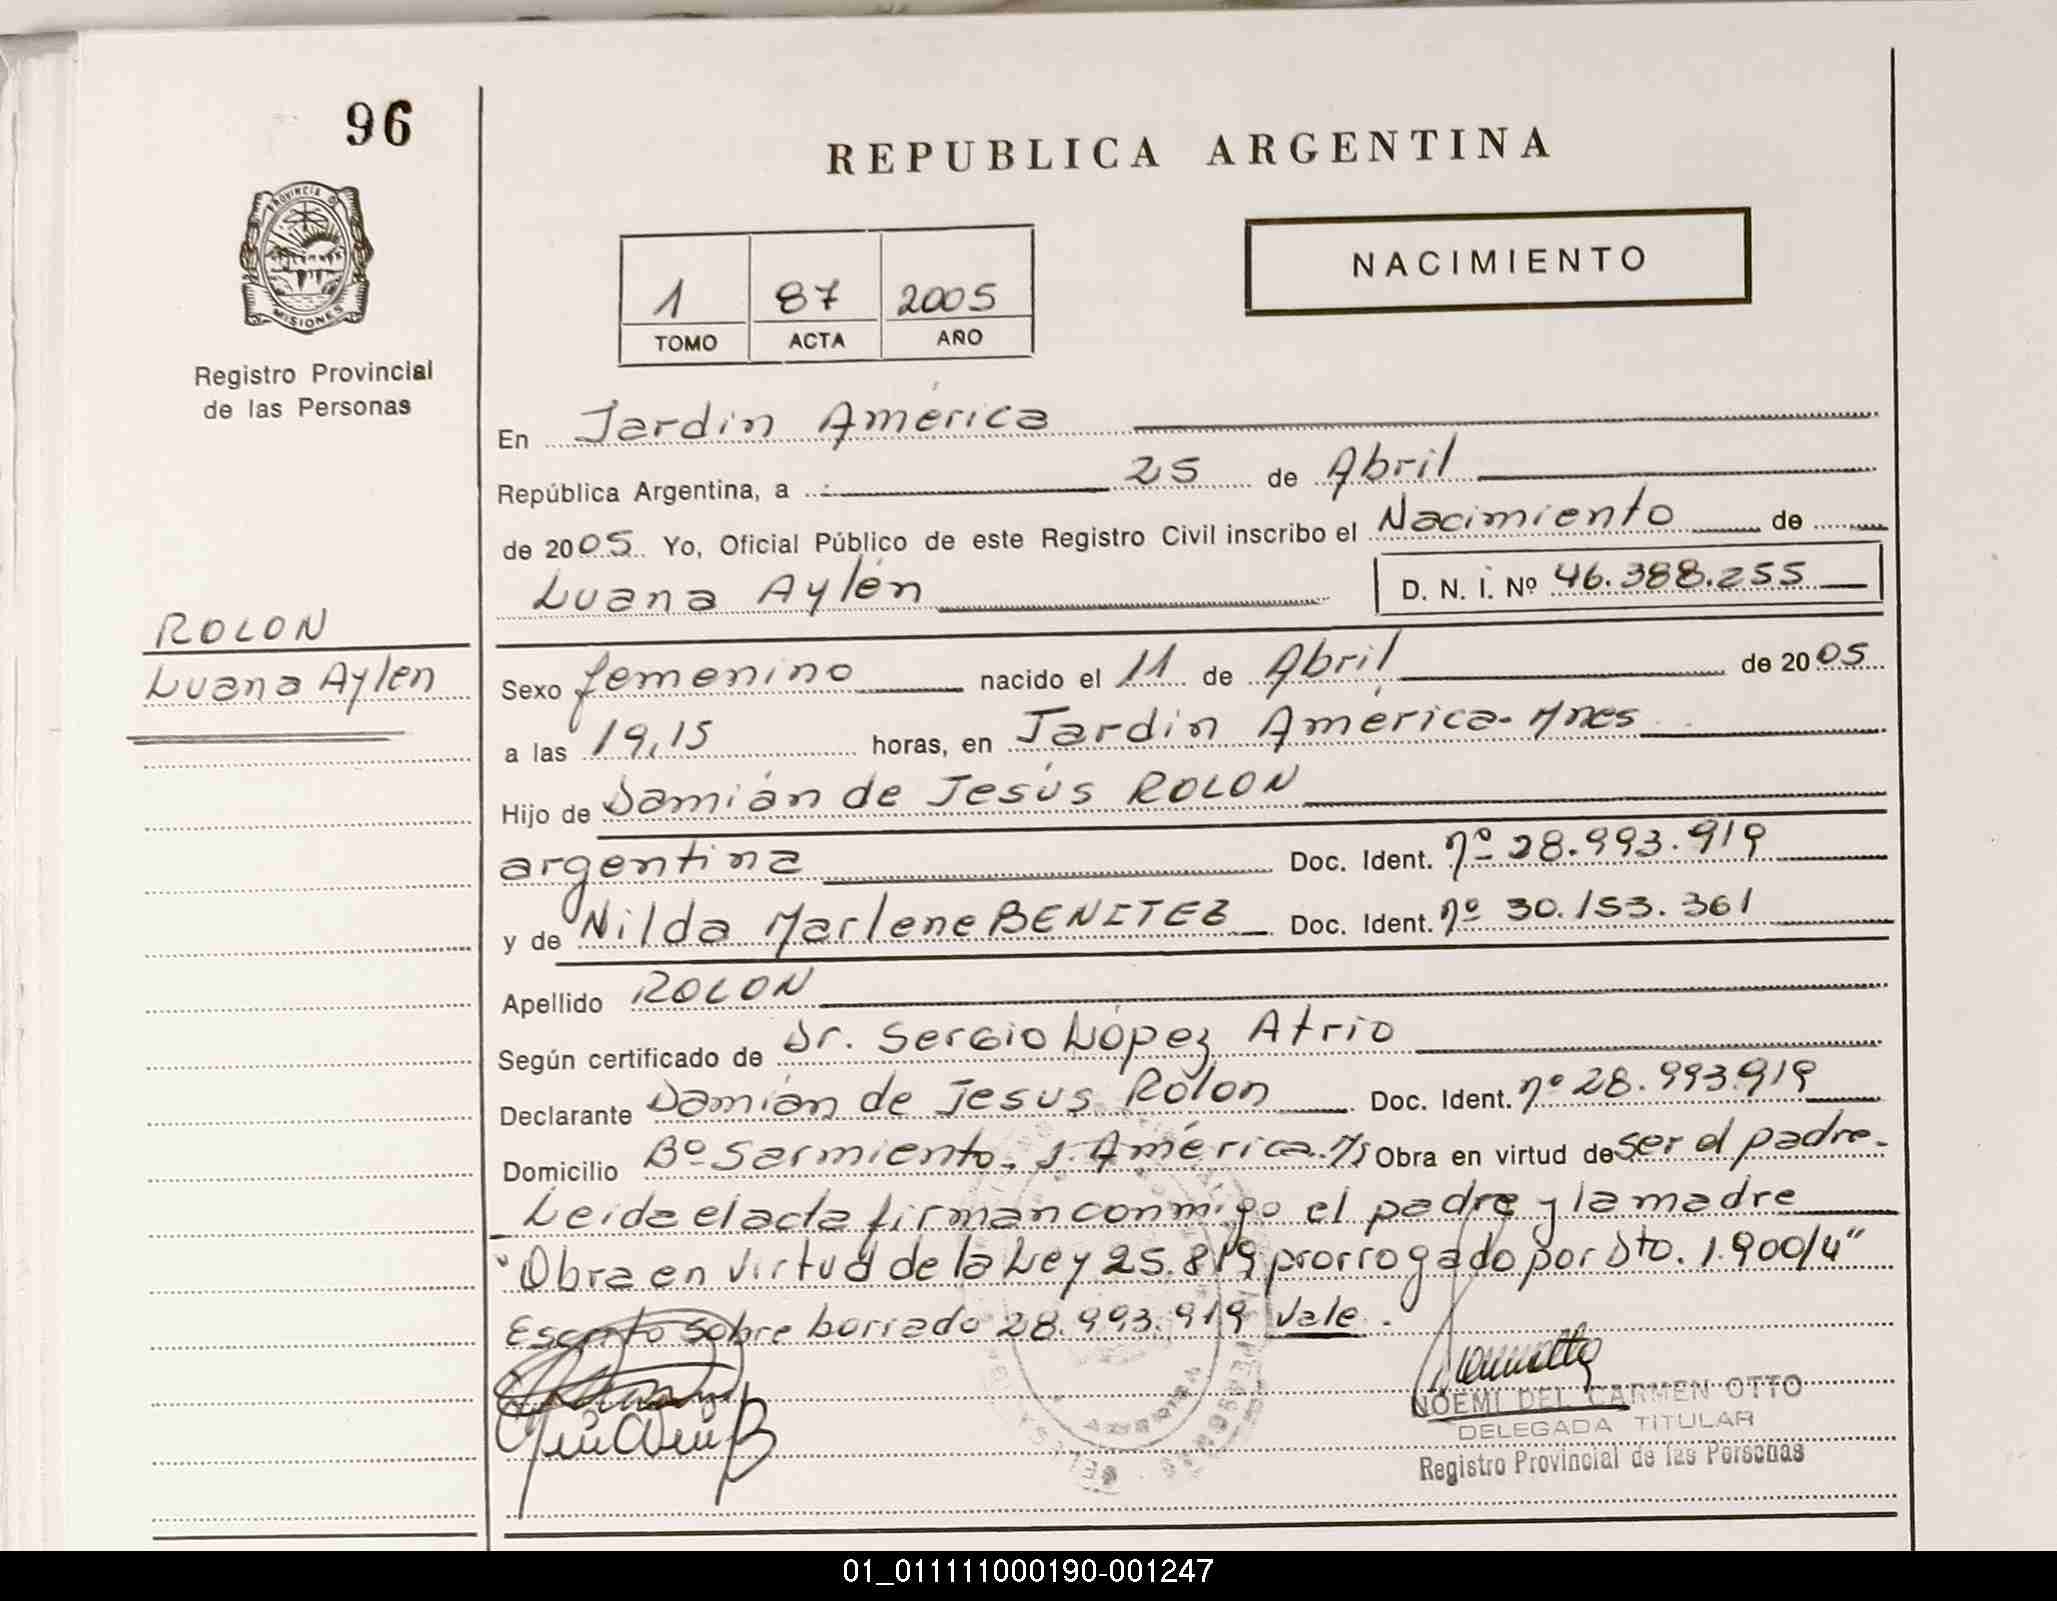 96
REPUBLICA ARGENTINA
PROVINCIA DE
MISIONES
NACIMIENTO
1 87 2005
TOMO ACTA AÑO
Registro Provincial
de las Personas
En Jardín América
República Argentina, a 25 de Abril
de 2005 Yo, Oficial Público de este Registro Civil inscribo el Nacimiento de
Luana Aylén D. N. I. Nº 46.388.255
ROLON
Luana Aylen
Sexo femenino nacido el 11 de Abril de 2005
a las 19,15 horas, en Jardín América-Mnes
Hijo de Damián de Jesús ROLON
argentina Doc. Ident. nº 28.993.919
y de Nilda Marlene BENITEZ Doc. Ident. nº 30.153.361
Apellido ROLON
Según certificado de Dr. Sergio López Atrio
Declarante Damián de Jesus Rolon Doc. Ident. nº 28.993.919
Domicilio Bº Sarmiento. J. América. Ms Obra en virtud de ser el padre.
Leida el acta firman conmigo el padre y la madre
"Obra en virtud de la Ley 25.819 prorrogado por Dto. 1.900/4"
Escrito sobre borrado 28.993.919 Vale.
NOEMI DEL CARMEN OTTO
DELEGADA TITULAR
Registro Provincial de las Personas
01_011111000190-001247